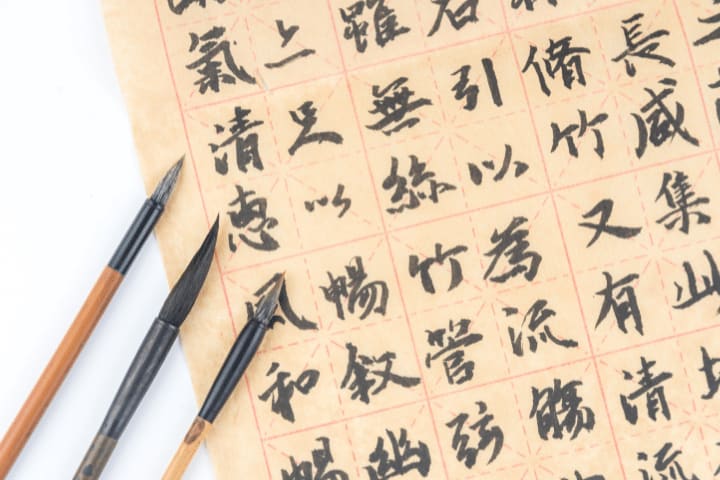 長咸集此地
脩竹又有清流
右引以為流觴
雖無絲竹管絃
足以暢敘幽
氣清惠風和暢